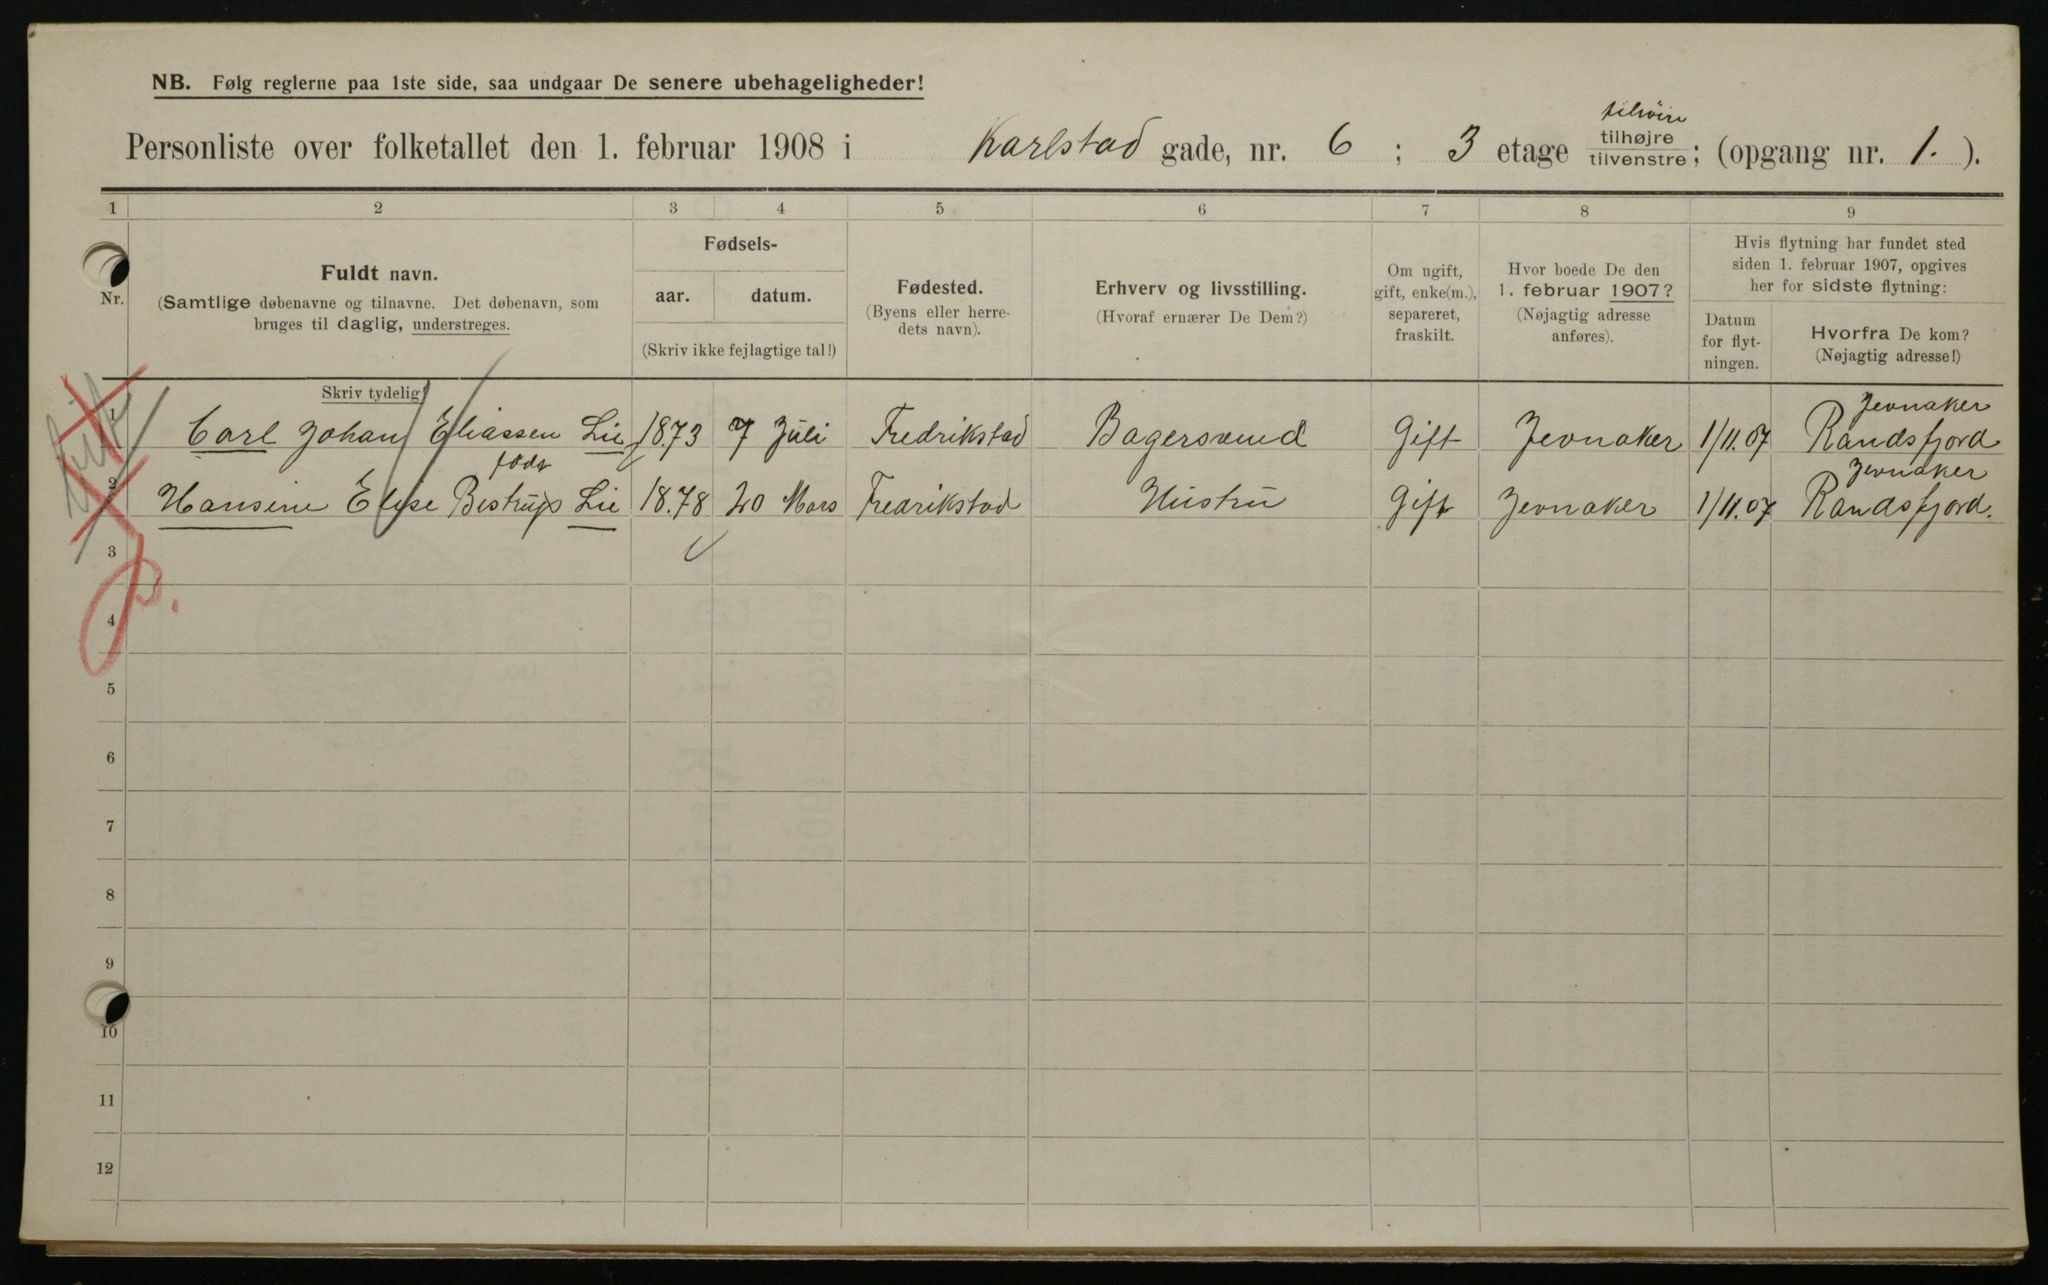 NB. Følg reglerne paa 1ste side, saa undgaar De senere ubehageligheder!
tilhöire
Personliste over folketallet den 1. februar 1908 i Karlstad gade, nr. 6 ; 3 etage tilhøjre tilvenstre; (opgang nr. 1. ).
1 2 3 4 5 6 7 8 9
Nr.
Fuldt navn.
(Samtlige døbenavne og tilnavne. Det døbenavn, som
bruges til daglig, understreges.
Skriv tydelig!
Fødsels-
aar. datum.
(Skriv ikke fejlagtige tal!)
Fødested.
(Byens eller herre-
dets navn).
Erhverv og livsstilling.
(Hvoraf ernærer De Dem?)
Om ugift,
gift, enke(m.),
separeret,
fraskilt.
Hvor boede De den
1. februar 1907?
(Nøjagtig adresse
anføres).
Hvis flytning har fundet sted
siden 1. februar 1907, opgives
her for sidste flytning:
Datum
for flyt-
ningen.
Hvorfra De kom?
(Nøjagtig adresse!)
Jevnaker
1 Carl Johan Eliassen Lie 1873 7 Juli Fredrikstad Bagersvend Gift Jevnaker 1/11.07 Randsfjord
født Jevnaker
2 Hansine Elise Bestrup Lie 18.78 20 Mars Fredrikstad Hustru Gift Jevnaker 1/11.07 Randsfjord.
3
4
5
6
7
8
9
10
11
12